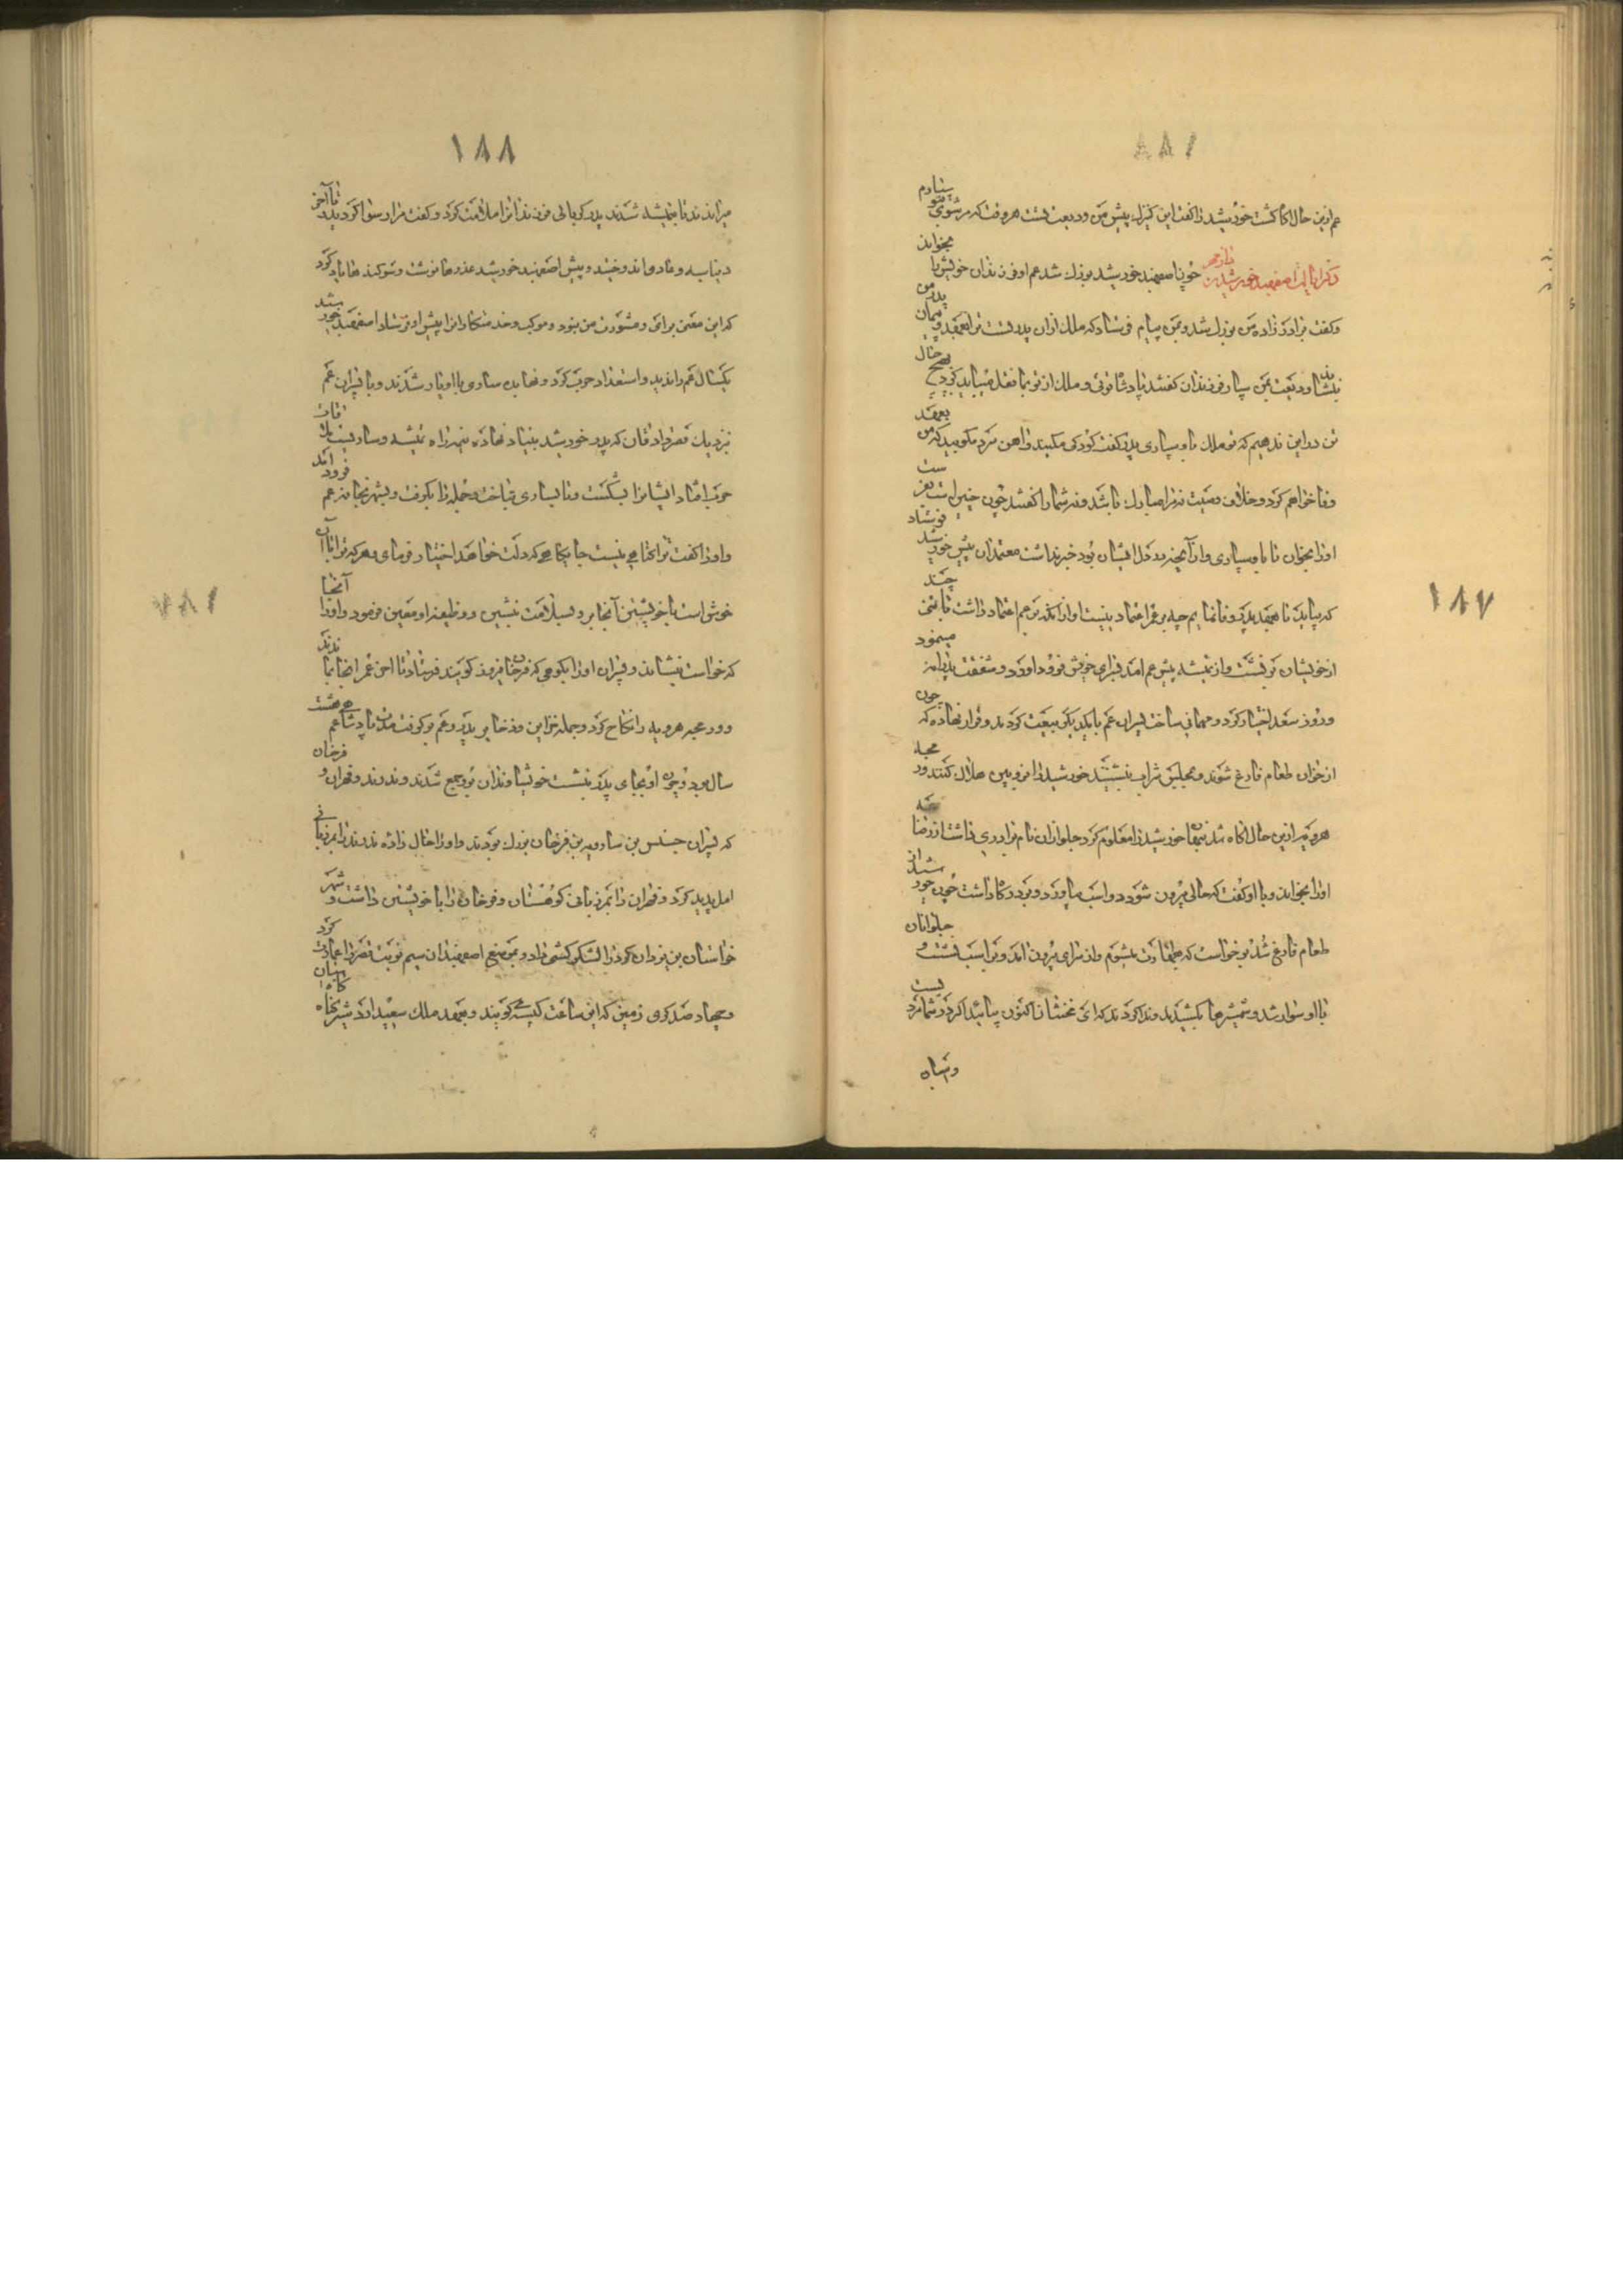 ۱۸۷
عم ازین حال آگاه گشت خورشید را گفت این کنیزک پیش من ودیعت تست هر وقت که مرد شوی بتو سپارم
ذکر ایالت اصفهبد خورشید بن دازمهر چون اصفهبد خورشید بزرگ شد عم او فرزندان خویش را بخواند
و گفت برادرزاده من بزرگ شد و بمن پیام فرستاد که ملک ازان پدر تست ترا بعهد و پیمان پدر من
بنشاند ودیعت بمن سپار فرزندان گفتند پادشاه توئی و ملک از تو بما نقل میباید کرد بهیچ حال
تن درین ندهیم که تو ملک باو سپاری پدر گفت کودکی مکنید و آهن سرد مکوبید که من بعهد
وفا خواهم کرد و خلاف وصیت نه مرا مبارک باشد و نه شما را گفتند چون چنین است بفرست
او را بخوان تا باو سپاری و ازآنچه در دل ایشان بود خبر نداشت معتمدان پیش خورشید فرستاد
که بیاید تا بعهد پدر وفا نمایم چه بر عمر اعتماد نیست او ازآنکه بر عم اعتماد داشت با تنی چند
از خویشان بر نشست و از تمیشه پیش عم آمد بسرای خویش فرود آورد و شفقت پدرانه مینمود
و روز سعد اختیار کرد و مهمانی ساخت پسران عم با یکدیگر بیعت کردند و قرار نهاده که چون
از خوان طعام فارغ شوند و مجلس شراب بنشینند خورشید را بزوبین هلاک کنند ور مجه
هرویه ازین حال آگاه شد پنهان خورشید را معلوم کرد جلوانان نام برادری داشت از رضا
او را بخواند و با او گفت که حالی بیرون شود دو اسب بیاورد و بر درگاه داشت چون خورشید از
طعام فارغ شد برخواست که بطهارت میشوم و از سرای بیرون آمد و بر اسب نشست و جلوانان
با او سوار شد و شمشیرها بکشیدند و ندا کردند که ای مخنثان اکنون بیائید اگر در شما مرد یست
وشباه
۱۸۸
میراندند تا بتمیشه شدند پدر گوهالی فرزندانرا ملامت کرد و گفت مرا رسوا کردید تا آخر
دنیا سیه و عار دوام اندوختید و پیش اصفهبد خورشید عذرها نوشت و سوگندها یاد کرد
که این معنی برای و مشورت من نبود و موکب و خدمتکارانرا پیش او فرستاد اصفهبد خورشید
یکسال غم را ندید و استعداد حرب کرد و نهابده ساری با او یار شدند و با پسران عم
نزدیک قصر دادقان که پدر خورشید بنیاد نهاده نیمه راه تمیشه و ساری ملاقات
حرب افتاد ایشانرا بشکست و تا بساری بتاخت و جمله را بگرفت و بشهر بخانه عم فرود آمد
و او را گفت ترا گناهی نیست جائیکه که دلت خواهد اختیار فرمای و هرکه ترا با آن
خوش است با خویشتن آنجا بر و بسلامت بنشین و وظیفه او معین فرمود و او را آنجا
که خواست بنشاند و پسران او را بکوهی که فرخان فیروز گویند فرستاد تا آخر عمر آنجا بماندند
و ور مجه هرویه را نکاح کرد و جمله خزاین و ذخایر پدر و عم بر گرفت مدت پادشاه عم هشت
سال بود و چون او بجای پدر بنشست خویشاوندان برو جمع شدند وندرند و قهران و فرخان
که پسران جسنس بن سارویه بن فرخان بزرگ بودند و او را خال زاده وندرند را بمرزبانی
آمل پدید کرد و قهران را بمرزبانی کوهستان و فرخان را با خویشتن داشت و شهر
خواستان بن یزدان گرد را لشکرکشی داد و بموضع اصفهبدان سیم نوبت قصر را عمارت کرد
و چهارصد گری زمین که این ساعت کیسه گویند و بعهد ملک سعید اردشیر بنگاه کاه و میان